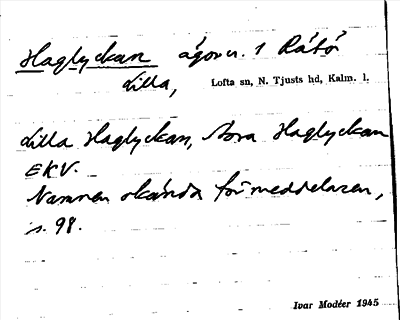 Haglyckan ågovn. 1 Råtö
Lilla, Lofta sn, N. Tjusts hd, Kalm. l.
Lilla Haglyckan, Stora Haglyckan
EKV.
Namnen okända för meddelaren,
s. 98.
Ivar Modéer 1945